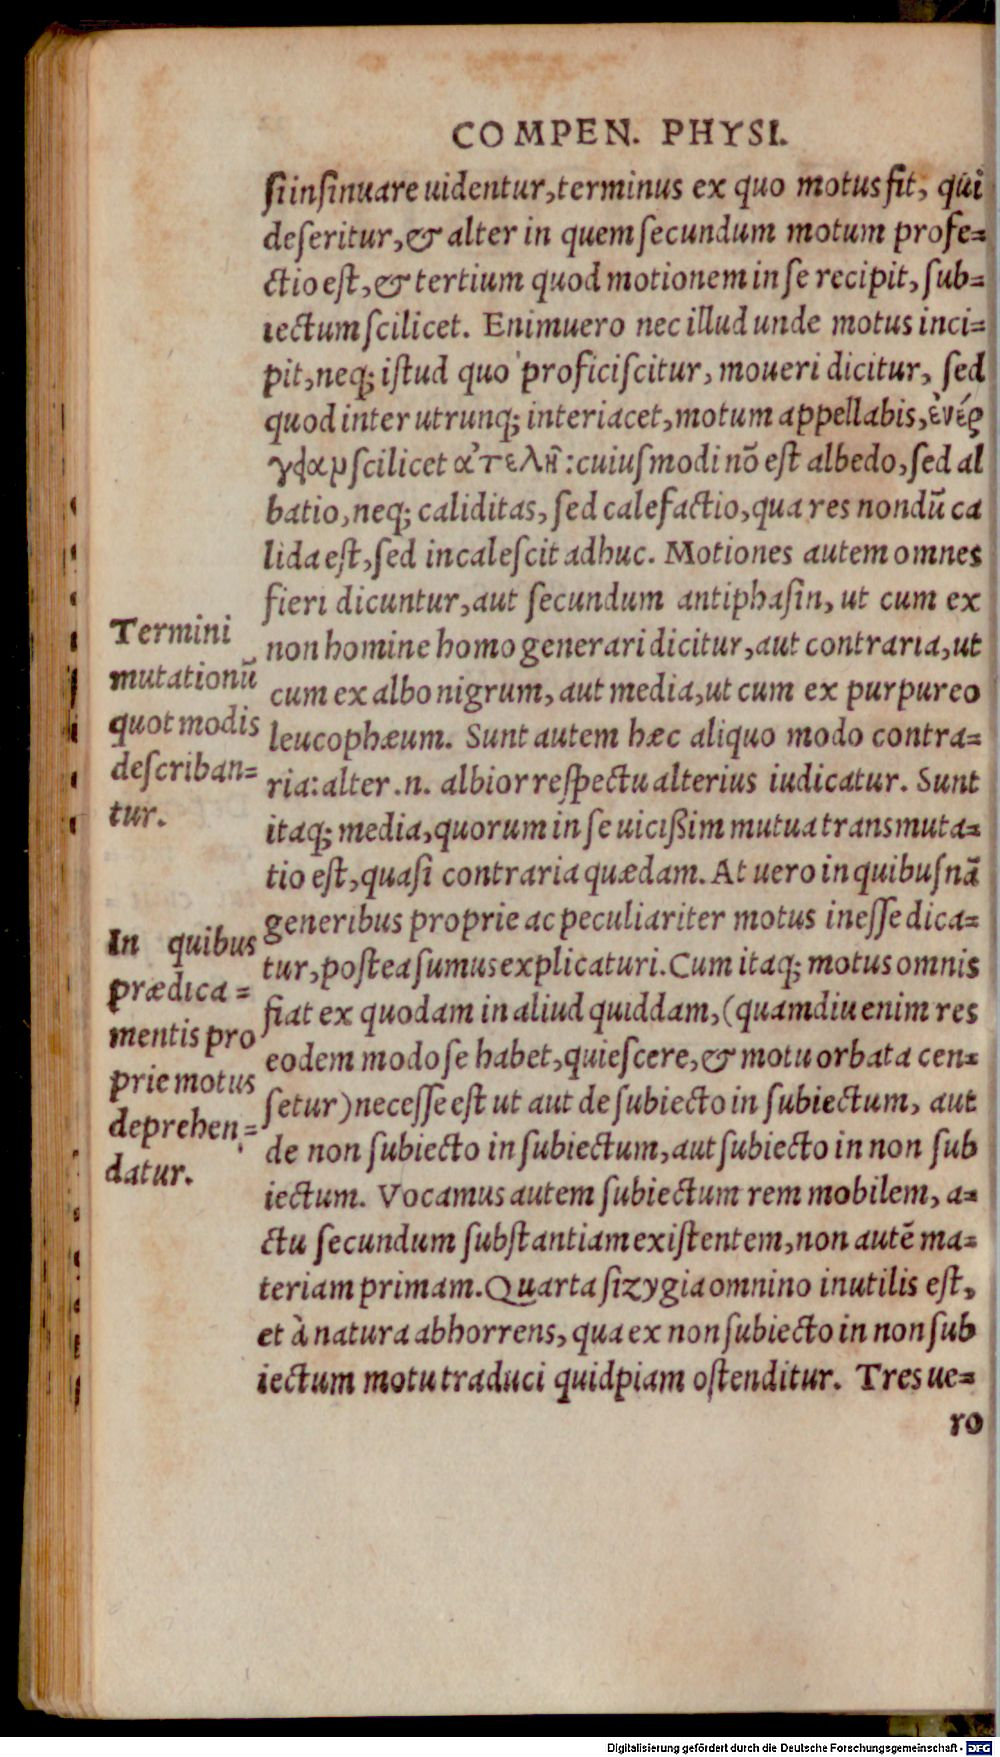 COMPEN. PHYSI.
ſi inſinuare uidentur, terminus ex quo motus fit, qui
deſeritur, & alter in quem ſecundum motum profe=
ctio eſt, & tertium quod motionem in ſe recipit, ſub=
iectum ſcilicet. Enimuero nec illud unde motus inci=
pit, neq; iſtud quo proficiſcitur, moueri dicitur, ſed
quod inter utrunq; interiacet, motum appellabis, ἐνέρ
γειαμ ſcilicet ἀτελῆ: cuiuſmodi nō eſt albedo, ſed al
batio, neq; caliditas, ſed calefactio, qua res nondū ca
lida eſt, ſed incaleſcit adhuc. Motiones autem omnes
fieri dicuntur, aut ſecundum antiphaſin, ut cum ex
non homine homo generari dicitur, aut contraria, ut
cum ex albo nigrum, aut media, ut cum ex purpureo
leucophæum. Sunt autem hæc aliquo modo contra=
ria: alter .n. albior reſpectu alterius iudicatur. Sunt
itaq; media, quorum in ſe uicißim mutua transmuta=
tio eſt, quaſi contraria quædam. At uero in quibuſnā
generibus proprie ac peculiariter motus ineſſe dica=
tur, poſtea ſumus explicaturi. Cum itaq; motus omnis
fiat ex quodam in aliud quiddam, (quamdiu enim res
eodem modo ſe habet, quieſcere, & motu orbata cen=
ſetur) neceſſe eſt ut aut de ſubiecto in ſubiectum, aut
de non ſubiecto in ſubiectum, aut ſubiecto in non ſub
iectum. Vocamus autem ſubiectum rem mobilem, a=
ctu ſecundum ſubſtantiam exiſtentem, non autē ma=
teriam primam. Quarta ſizygia omnino inutilis eſt,
et à natura abhorrens, qua ex non ſubiecto in non ſub
iectum motu traduci quidpiam oſtenditur. Tres ue=
ro
Termini
mutationū
quot modis
deſcriban=
tur.
In quibus
prædica=
mentis pro
prie motus
deprehen=
datur.
Digitalisierung gefördert durch die Deutsche Forschungsgemeinschaft - DFG